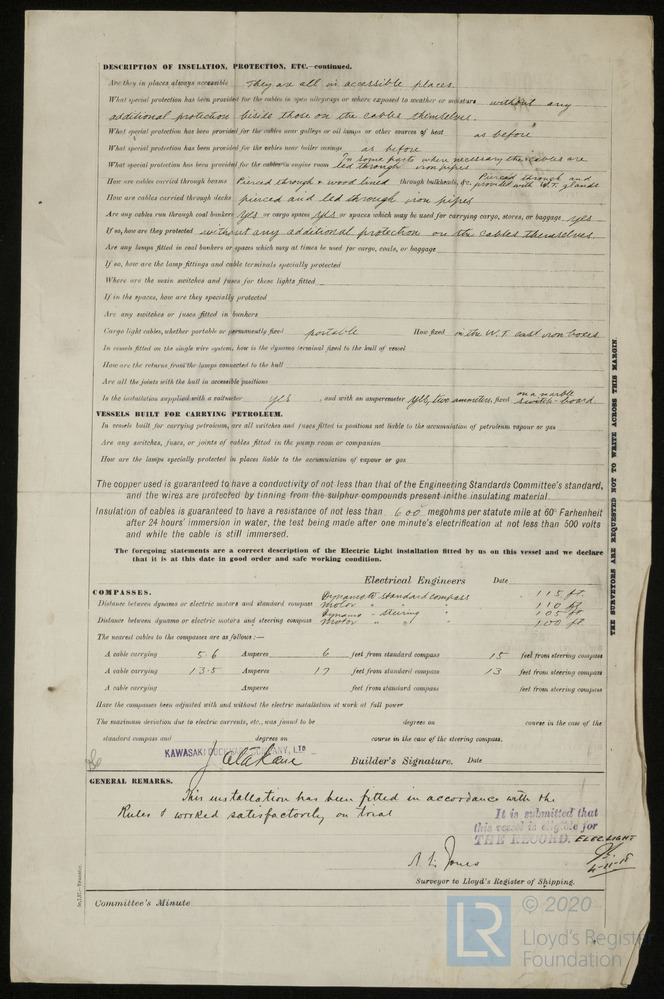 DESCRIPTION OF INSULATION, PROTECTION, ETC.—continued.
Are they in places always accessible They are all in accessible places.
What special protection has been provided for the cables in open alleyways or where exposed to weather or moisture without any
additional protection beside those on the cables themselves.
What special protection has been provided for the cables near galleys or oil lamps or other sources of heat as before
What special protection has been provided for the cables near boiler casings as before
What special protection has been provided for the cables in engine room In some parts where necessary the cables are
led through iron pipes
How are cables carried through beams Pierced through & wood lined through bulkheads, &c. Pierced through and
provided with W.T. glands
How are cables carried through decks pierced and led through iron pipes
Are any cables run through coal bunkers yes or cargo spaces yes or spaces which may be used for carrying cargo, stores, or baggage yes
If so, how are they protected without any additional protection on the cables themselves.
Are any lamps fitted in coal bunkers or spaces which may at times be used for cargo, coals, or baggage
If so, how are the lamp fittings and cable terminals specially protected
Where are the main switches and fuses for these lights fitted
If in the spaces, how are they specially protected
Are any switches or fuses fitted in bunkers
Cargo light cables, whether portable or permanently fixed portable How fixed in the W.T. cast iron boxes
In vessels fitted on the single wire system, how is the dynamo terminal fixed to the hull of vessel
How are the returns from the lamps connected to the hull
Are all the joints with the hull in accessible positions
Is the installation supplied with a voltmeter yes , and with an amperemeter yes, two ammeters, fixed on a marble
switch-board
VESSELS BUILT FOR CARRYING PETROLEUM.
In vessels built for carrying petroleum, are all switches and fuses fitted in positions not liable to the accumulation of petroleum vapour or gas
Are any switches, fuses, or joints of cables fitted in the pump room or companion
How are the lamps specially protected in places liable to the accumulation of vapour or gas
The copper used is guaranteed to have a conductivity of not less than that of the Engineering Standards Committee's standard,
and the wires are protected by tinning from the sulphur compounds present in the insulating material
Insulation of cables is guaranteed to have a resistance of not less than 600 megohms per statute mile at 60° Farhenheit
after 24 hours' immersion in water, the test being made after one minute's electrification at not less than 500 volts
and while the cable is still immersed.
The foregoing statements are a correct description of the Electric Light installation fitted by us on this vessel and we declare
that it is at this date in good order and safe working condition.
Electrical Engineers Date
COMPASSES.
Dynamo to standard compass 115 ft.
Distance between dynamo or electric motors and standard compass Motor " " " 110 ft
Dynamo - steering " 105 ft
Distance between dynamo or electric motors and steering compass Motor " " " 100 ft
The nearest cables to the compasses are as follows:—
A cable carrying 5.6 Amperes 6 feet from standard compass 15 feet from steering compass
A cable carrying 13.5 Amperes 17 feet from standard compass 13 feet from steering compass
A cable carrying Amperes feet from standard compass feet from steering compass
Have the compasses been adjusted with and without the electric installation at work at full power
The maximum deviation due to electric currents, etc., was found to be degrees on course in the case of the
standard compass and degrees on course in the case of the steering compass.
KAWASAKI DOCKYARD COMPANY, LTD
Builder's Signature. Date
GENERAL REMARKS.
This installation has been fitted in accordance with the
Rules & worked satisfactorily on trial
It is submitted that
this vessel is eligible for
THE RECORD. ELEC. LIGHT
4-11-08
Surveyor to Lloyd's Register of Shipping.
Committee's Minute
THE SURVEYORS ARE REQUESTED NOT TO WRITE ACROSS THIS MARGIN
LR
© 2020
Lloyd's Register
Foundation